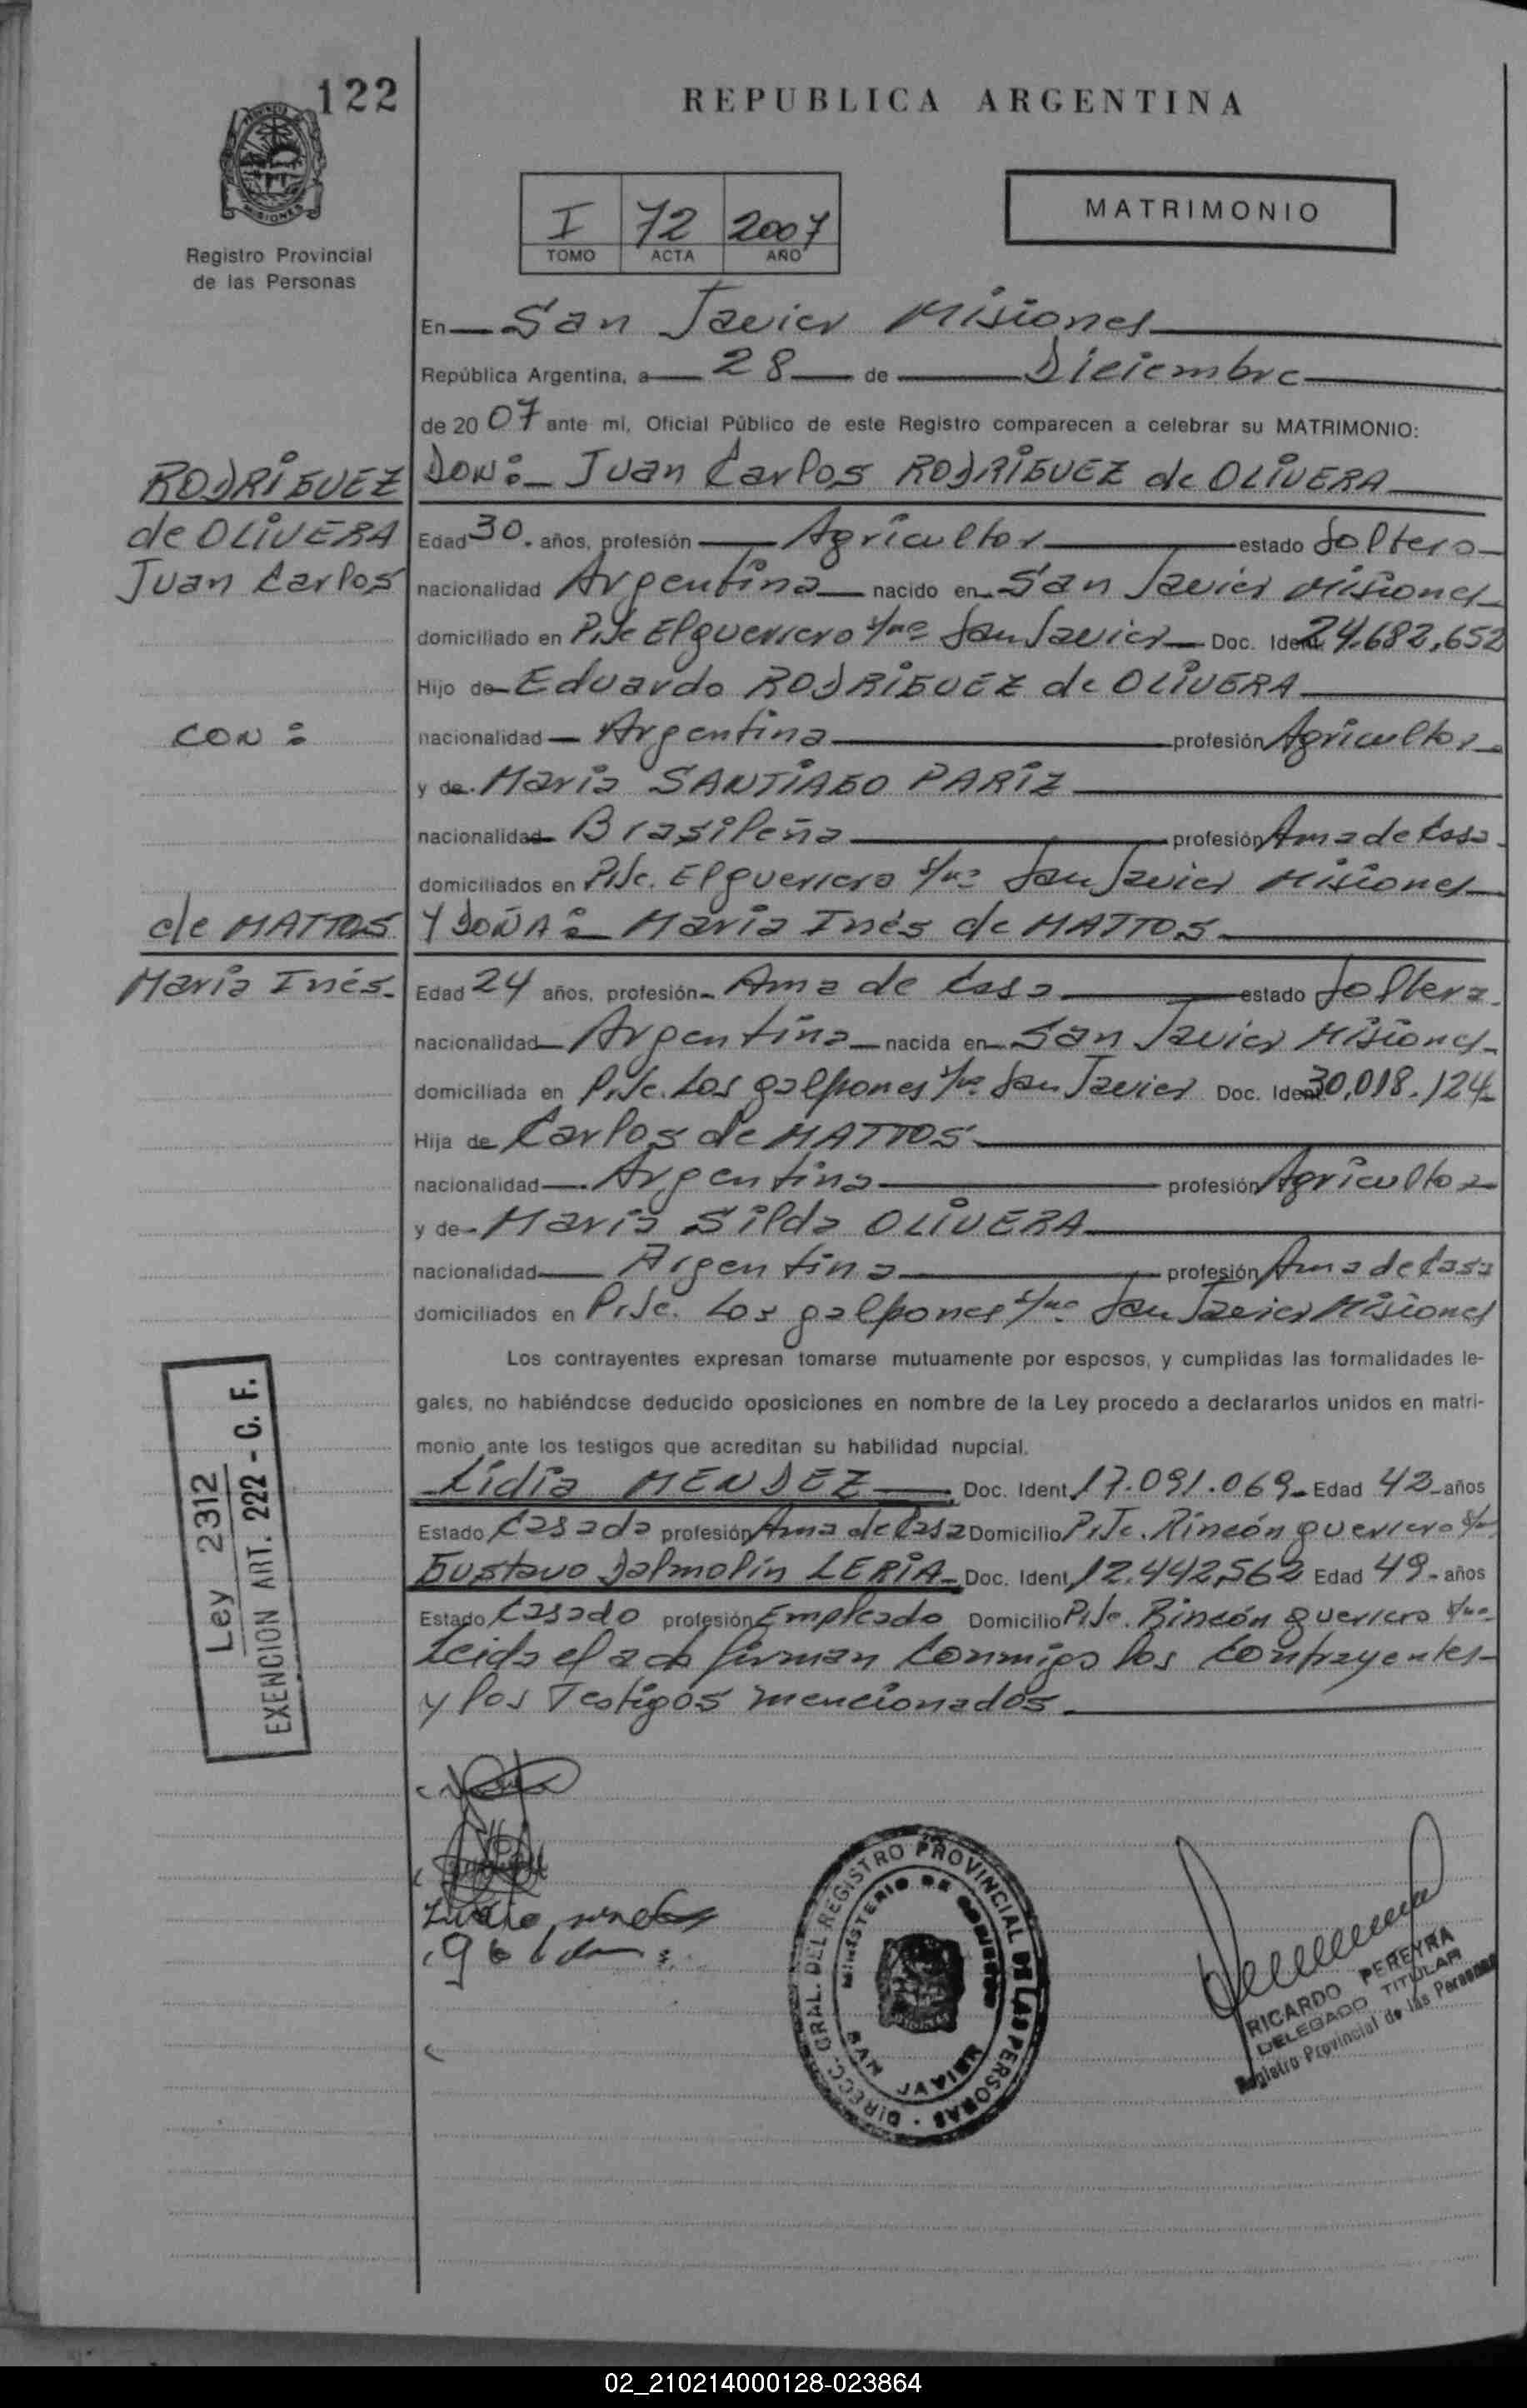 122
REPUBLICA ARGENTINA
MISIONES
Registro Provincial
de las Personas
I 72 2007
TOMO ACTA AÑO
MATRIMONIO
En San Javier Misiones
República Argentina, a 28 de Diciembre
de 20 07 ante mí, Oficial Público de este Registro comparecen a celebrar su MATRIMONIO:
RODRIGUEZ
de OLIVERA
Juan Carlos
DON: Juan Carlos RODRIGUEZ de OLIVERA
Edad 30. años, profesión Agricultor estado Soltero
nacionalidad Argentina nacido en San Javier Misiones
domiciliado en Pje El guerrero s/nº San Javier Doc. Ident. 24.682.652
Hijo de Eduardo RODRIGUEZ de OLIVERA
CON:
nacionalidad Argentina profesión Agricultor
y de María SANTIAGO PARIZ
nacionalidad Brasileña profesión Ama de Casa
domiciliados en Pje. El guerrero s/nº San Javier Misiones
de MATTOS
María Inés.
Y DOÑA: María Inés de MATTOS
Edad 24 años, profesión Ama de Casa estado Soltera
nacionalidad Argentina nacida en San Javier Misiones
domiciliada en Pje. Los galpones s/nº San Javier Doc. Ident. 30.018.124
Hija de Carlos de MATTOS
nacionalidad Argentina profesión Agricultor
y de María Silda OLIVERA
nacionalidad Argentina profesión Ama de Casa
domiciliados en Pje. Los galpones s/nº San Javier Misiones
Los contrayentes expresan tomarse mutuamente por esposos, y cumplidas las formalidades le-
gales, no habiéndose deducido oposiciones en nombre de la Ley procedo a declararlos unidos en matri-
monio ante los testigos que acreditan su habilidad nupcial.
Ley 2312
EXENCION ART. 222 - C. F.
Lidia MENDEZ Doc. Ident. 17.091.069 Edad 42 años
Estado Casada profesión Ama de Casa Domicilio Pje. Rincón guerrero s/nº
Gustavo Dalmolín LERIA Doc. Ident. 12.442.562 Edad 49 años
Estado Casado profesión Empleado Domicilio Pje. Rincón guerrero s/nº
Leida el acta firman Conmigo los Contrayentes
y los Testigos mencionados.
DIRECC. GRAL. DEL REGISTRO PROVINCIAL DE LAS PERSONAS
MINISTERIO DE GOBIERNO
SAN JAVIER
RICARDO PEREYRA
DELEGADO TITULAR
Registro Provincial de las Personas
02_210214000128-023864